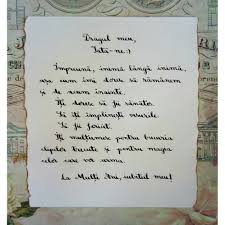 Dragul meu,
Iată-ne :)
Împreună, inimă lângă inimă,
așa cum îmi doresc să rămânem
și de acum înainte.
Îți doresc să fii sănătos.
Să îți împlinești visurile.
Să fii fericit.
Îți mulțumesc pentru bucuria
clipelor trecute și pentru magia
celor care vor urma.
La Mulți Ani, iubitul meu!